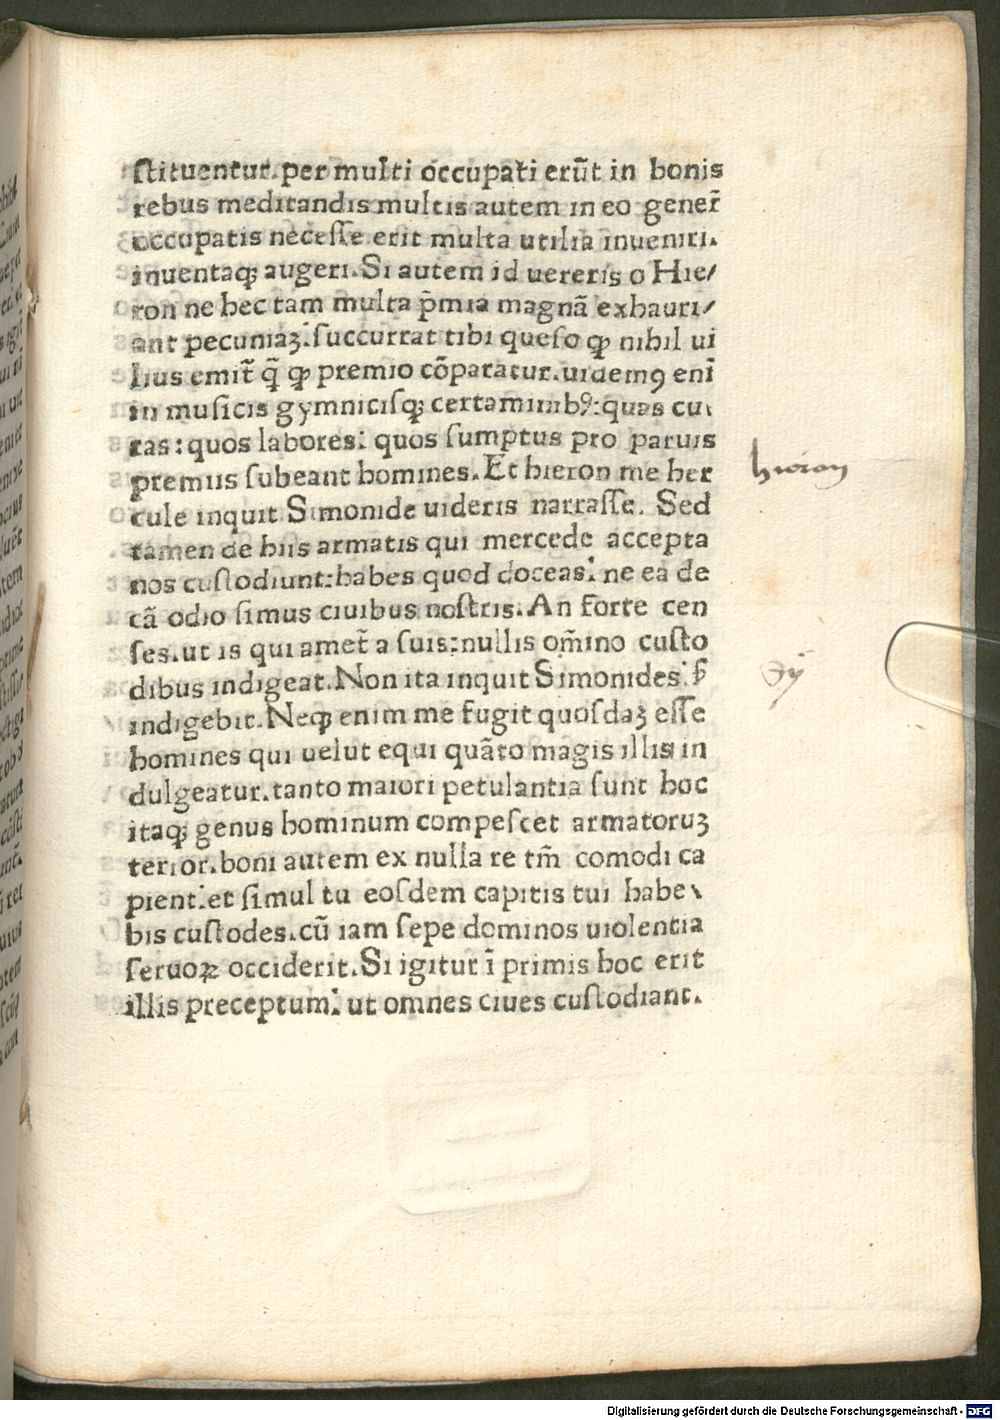 stituentur. per multi occupati erūt in bonis
rebus meditandis multis autem in eo gener̄
occupatis necesse erit multa utilia inveniri.
inuentaqꝫ augeri. Si autem id uereris o Hie/
ron ne hec tam multa p̄mia magnā exhauri/
ant pecuniaꝫ: succurrat tibi queso ꝙ nihil ui
lius emit̄ q̄ ꝙ premio cōparatur. uidemꝰ enī
in musicis gymnicisqꝫ certaminibꝰ: quas cu
ras: quos labores: quos sumptus pro paruis
premiis subeant homines. Et hieron me her
cule inquit Simonide uideris narrasse. Sed
tamen de hiis armatis qui mercede accepta
nos custodiunt: habes quod doceas: ne ea de
cā odio simus ciuibus nostris. An forte cen
ses. ut is qui amet̄ a suis: nullis om̄ino custo
dibus indigeat. Non ita inquit Simonides: s̄
indigebit. Neqꝫ enim me fugit quosdaꝫ esse
homines qui uelut equi quāto magis illis in
dulgeatur. tanto maiori petulantia sunt hoc
itaqꝫ genus hominum compescet armatoruꝫ
terror. boni autem ex nulla re tm̄ comodi ca
pient: et simul tu eosdem capitis tui habe
bis custodes. cū iam sepe dominos uiolentia
seruoꝝ occiderit. Si igitur ī primis hoc erit
illis preceptum: ut omnes ciues custodiant.
hieron
Digitalisierung gefördert durch die Deutsche Forschungsgemeinschaft - DFG